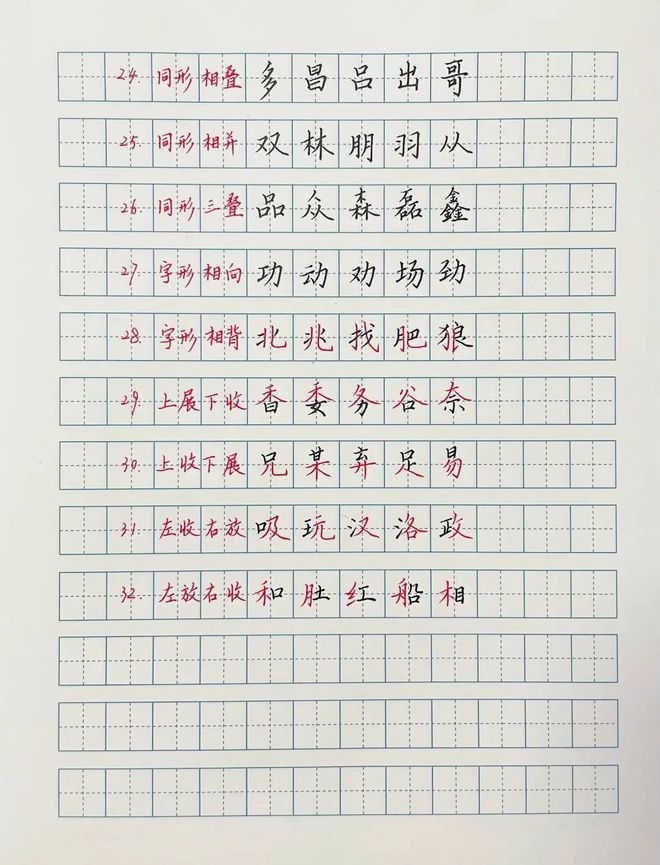 24. 同形相叠 多昌吕出哥
25. 同形相并 双林朋羽从
26. 同形三叠 品众森磊鑫
27. 字形相向 功动劝场劲
28. 字形相背 北兆找肥狼
29. 上展下收 香委务谷奈
30. 上收下展 兄某弃足易
31. 左收右放 吸玩汉洛政
32. 左放右收 和肚红船相